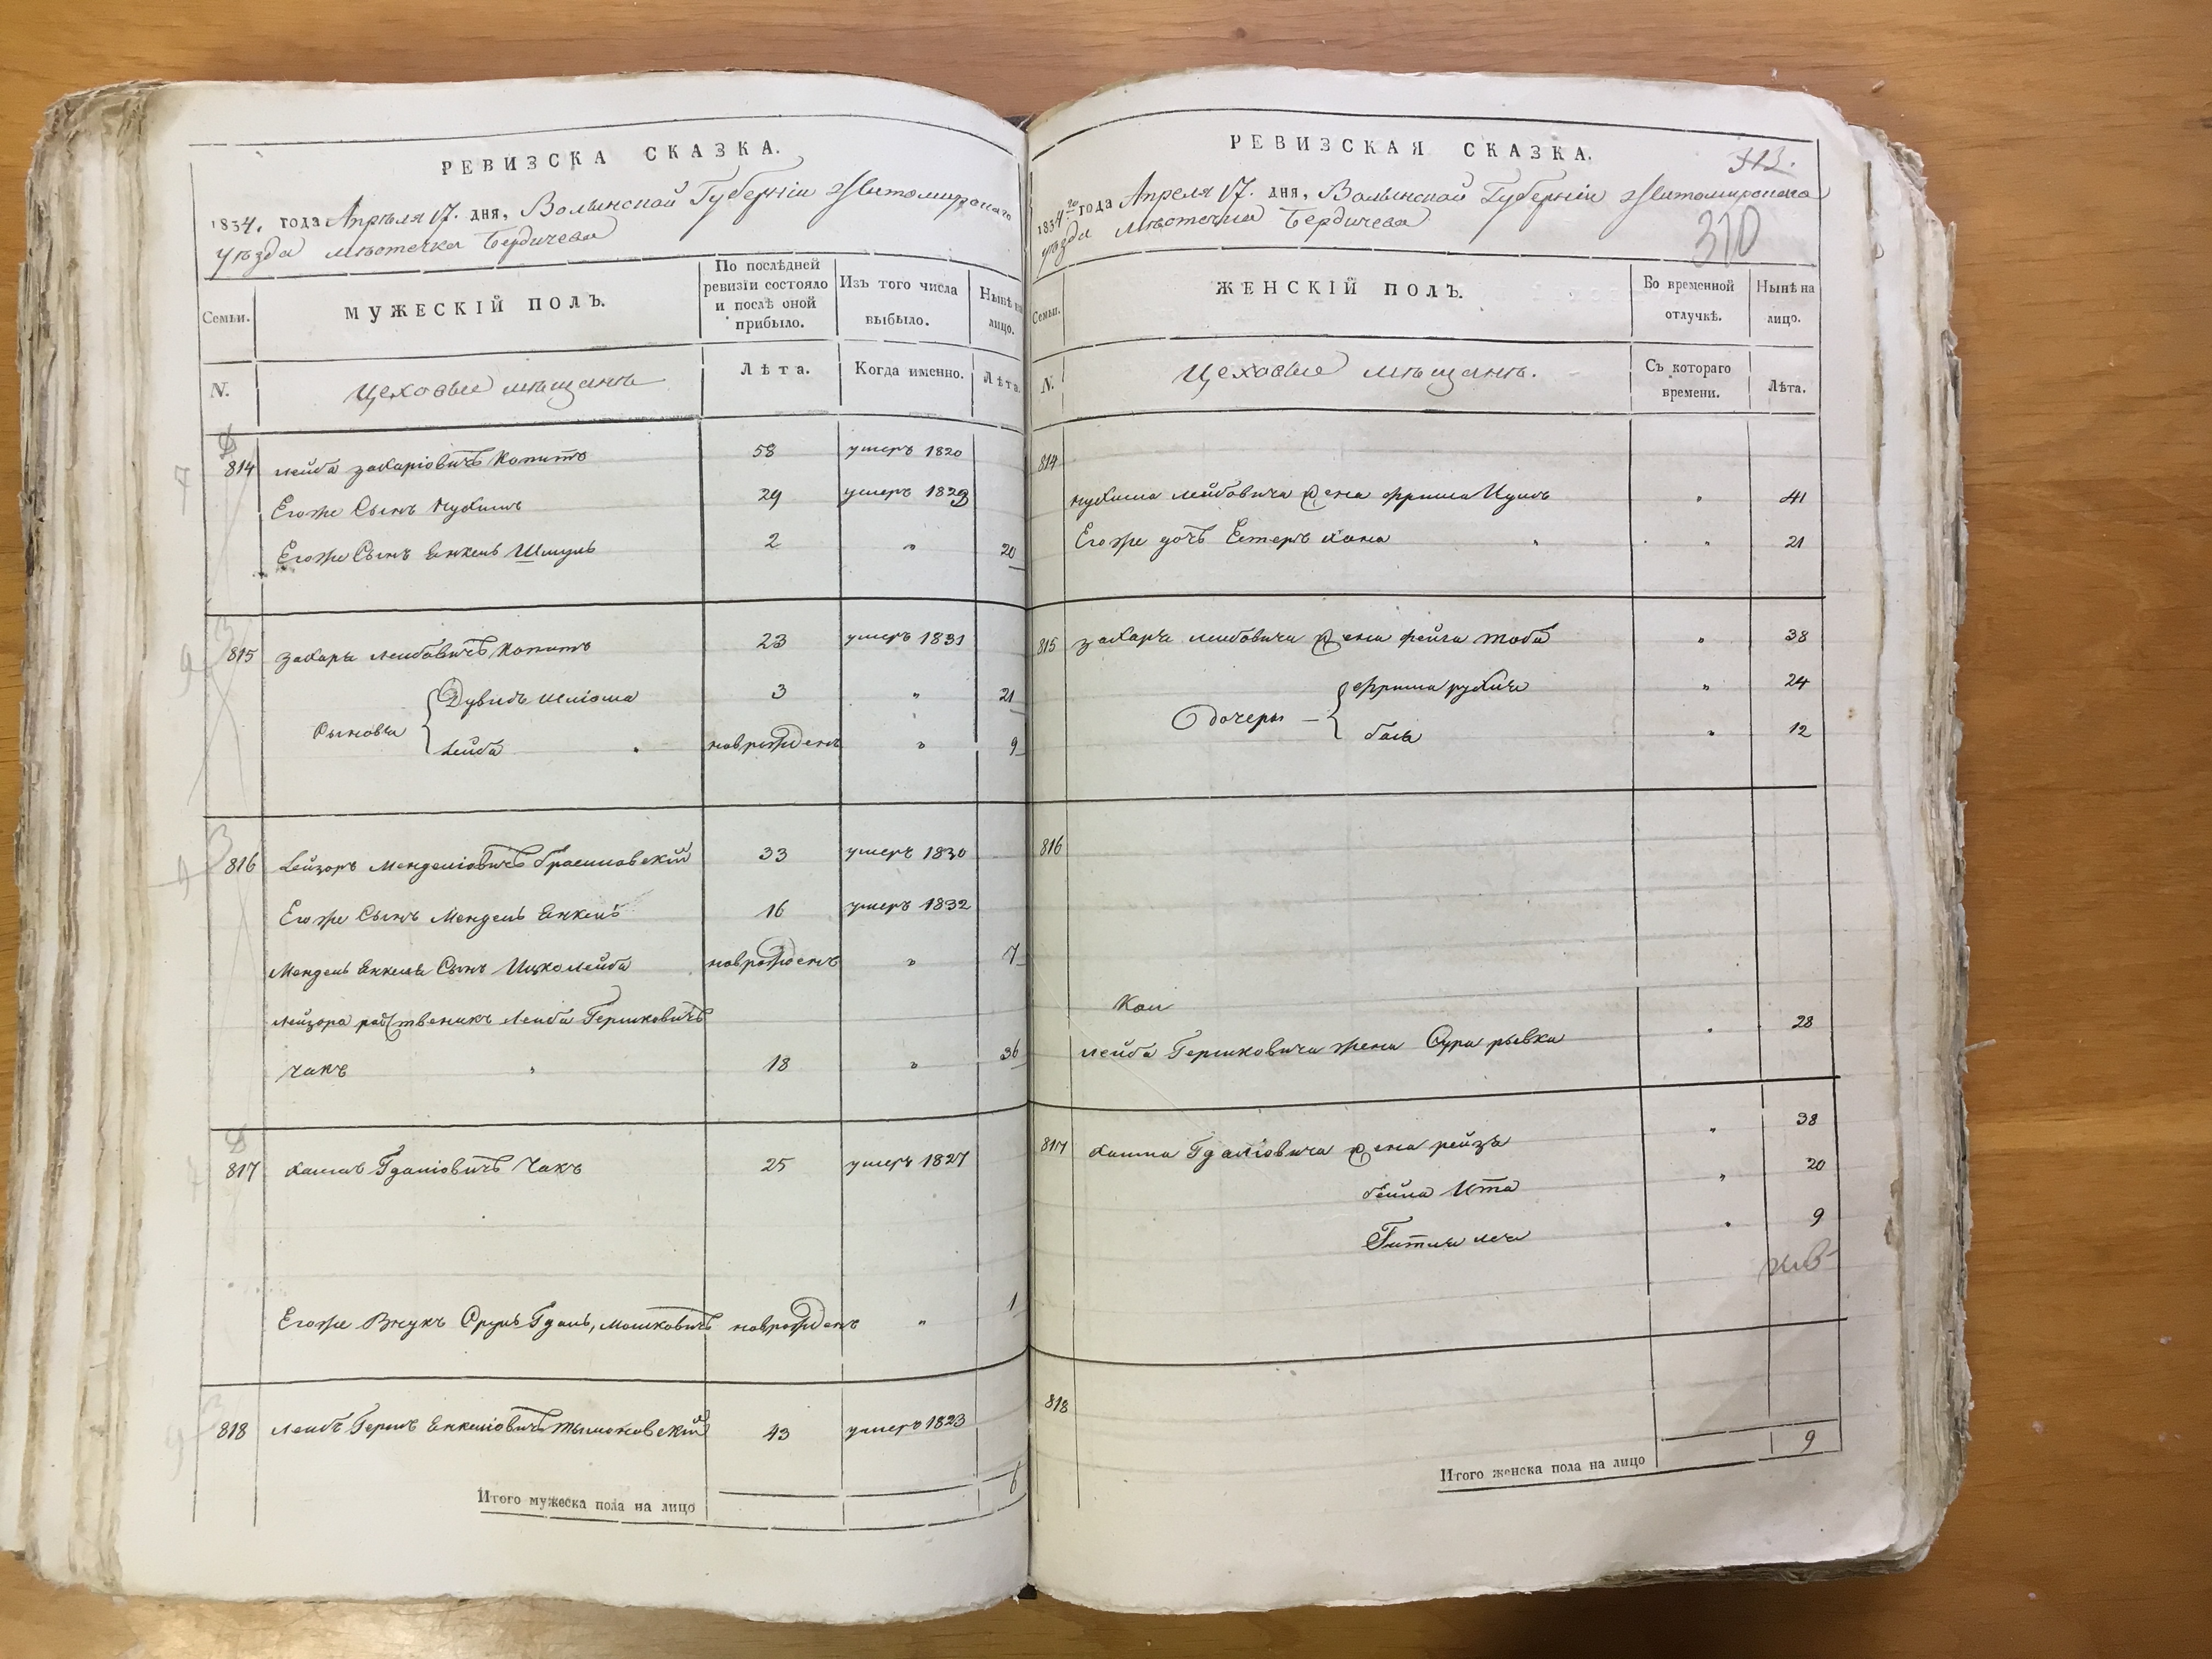 РЕВИЗСКА СКАЗКА.
1834. года Апрѣля 17. дня, Волынской Губерніи Житомирскаго
уѣзда мѣстечка Бердичева
Семьи.
МУЖЕСКІЙ ПОЛЪ.
По послѣдней ревизіи состояло и послѣ оной прибыло.
Изъ того числа выбыло.
Нынѣ на лицо.
N.
Цеховые мѣщане
Лѣта.
Когда именно.
Лѣта
814 Лейба Захаріовичъ Копитъ 58 умеръ 1820
Егоже Сынъ Нухимъ 29 умеръ 1829
Егоже Сынъ Енкель Шмуль 2 " 20
815 Захаръ Лейбовичъ Копитъ 23 умеръ 1831
Сыновья { Дувидъ Шліома 3 " 21
Лейба новорожденъ " 9
816 Лейзоръ Менделіовичъ 33 умеръ 1830
Егоже Сынъ Мендель Енкель 16 умеръ 1832
Мендель Енкеля Сынъ Ицко Лейба новорожденъ " 7
Лейзора родственикъ Лейба Гершковичъ
Чакъ 18 " 36
817 Хаимъ Гдаліовичъ Чакъ 25 умеръ 1827
Егоже Внукъ Сруль Гдаль, Мошковичъ новорожденъ " 1
818 Лейбъ Гершъ Енкеліовичъ 43 умеръ 1823
Итого мужеска пола на лицо 6
РЕВИЗСКАЯ СКАЗКА.
313.
1834 года Апреля 17. дня, Волынской Губерніи Житомирскаго
уѣзда мѣстечка Бердичева
310
Семьи.
ЖЕНСКІЙ ПОЛЪ.
Во временной отлучкѣ.
Нынѣ на лицо.
N.
Цеховые мѣщане.
Съ котораго времени.
Лѣта.
814
Нухима Лейбовича жена Фрима Цупъ " 41
Егоже дочь Естеръ Хана " 21
815 Захара Лейбовича жена Фейга Тоба " 38
Дочеры — { Фрима Рухля " 24
бася " 12
816
Лейба Гершковича жена Сура Рывка " 28
817 Хаима Гдаліовича жена Рейза " 38
бейла Ита " 20
Гитля Лея " 9
818
Итого женска пола на лицо 9